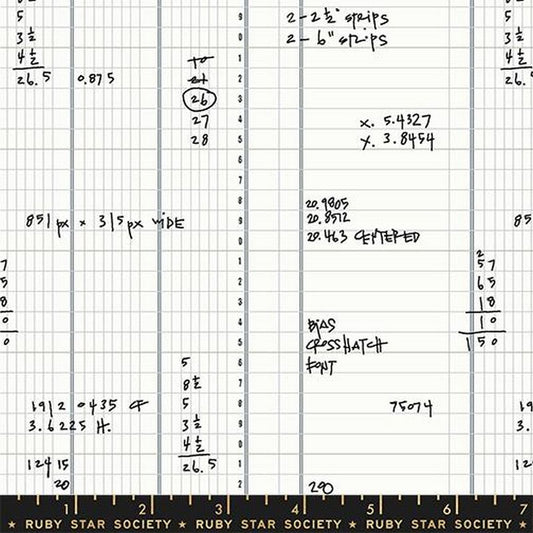 5
3 ½
4 ½
26.5
0.875
2 - 2 ½" strips
2 - 6" strips
10
21
26
27
28
x. 5.4327
y. 3.8454
20.9805
20.8512
20.463 CENTERED
851 px x 315 px WIDE
2
57
65
18
10
150
BIAS
CROSSHATCH
FONT
5
8 ½
5
3 ½
4 ½
26.5
1912 0435 CF
3.6225 H.
12415
20
75074
290
9
0
1
2
3
4
5
6
7
8
9
0
1
2
3
4
5
6
7
8
9
0
1
2
26.
85
7
5
8
0
0
19
3.
12
1 2 3 4 5 6 7
★ RUBY STAR SOCIETY ★ RUBY STAR SOCIETY ★ RUBY STAR SOCIETY ★